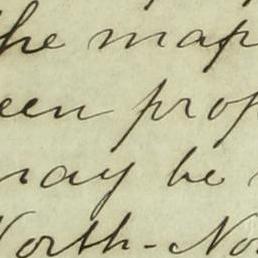 the map
een prop
may be
North-No